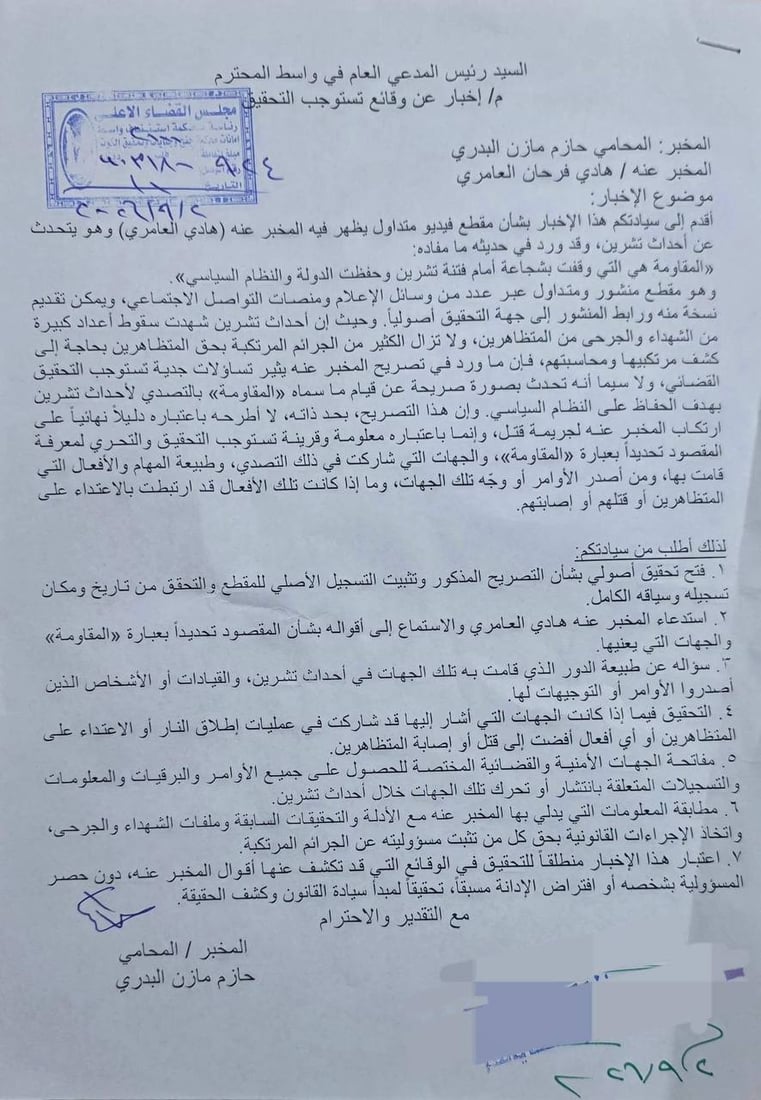 السيد رئيس المدعي العام في واسط المحترم
م/ إخبار عن وقائع تستوجب التحقيق
مجلس القضاء الاعلى
رئاسة محكمة استئناف واسط
التاريخ
٢٠٢٦/٩/٢
المخبر: المحامي حازم مازن البدري
المخبر عنه / هادي فرحان العامري
موضوع الإخبار:
أقدم إلى سيادتكم هذا الإخبار بشأن مقطع فيديو متداول يظهر فيه المخبر عنه (هادي العامري) وهو يتحدث
عن أحداث تشرين، وقد ورد في حديثه ما مفاده:
«المقاومة هي التي وقفت بشجاعة أمام فتنة تشرين وحفظت الدولة والنظام السياسي».
وهو مقطع منشور ومتداول عبر عدد من وسائل الإعلام ومنصات التواصل الاجتماعي، ويمكن تقديم
نسخة منه ورابط المنشور إلى جهة التحقيق أصولياً. وحيث إن أحداث تشرين شهدت سقوط أعداد كبيرة
من الشهداء والجرحى من المتظاهرين، ولا تزال الكثير من الجرائم المرتكبة بحق المتظاهرين بحاجة إلى
كشف مرتكبيها ومحاسبتهم، فإن ما ورد في تصريح المخبر عنه يثير تساؤلات جدية تستوجب التحقيق
القضائي، ولا سيما أنه تحدث بصورة صريحة عن قيام ما سماه «المقاومة» بالتصدي لأحداث تشرين
بهدف الحفاظ على النظام السياسي. وإن هذا التصريح، بحد ذاته، لا أطرحه باعتباره دليلاً نهائياً على
ارتكاب المخبر عنه لجريمة قتل، وإنما باعتباره معلومة وقرينة تستوجب التحقيق والتحري لمعرفة
المقصود تحديداً بعبارة «المقاومة»، والجهات التي شاركت في ذلك التصدي، وطبيعة المهام والأفعال التي
قامت بها، ومن أصدر الأوامر أو وجّه تلك الجهات، وما إذا كانت تلك الأفعال قد ارتبطت بالاعتداء على
المتظاهرين أو قتلهم أو إصابتهم.
لذلك أطلب من سيادتكم:
١. فتح تحقيق أصولي بشأن التصريح المذكور وتثبيت التسجيل الأصلي للمقطع والتحقق من تاريخ ومكان
تسجيله وسياقه الكامل.
٢. استدعاء المخبر عنه هادي العامري والاستماع إلى أقواله بشأن المقصود تحديداً بعبارة «المقاومة»
والجهات التي يعنيها.
٣. سؤاله عن طبيعة الدور الذي قامت به تلك الجهات في أحداث تشرين، والقيادات أو الأشخاص الذين
أصدروا الأوامر أو التوجيهات لها.
٤. التحقيق فيما إذا كانت الجهات التي أشار إليها قد شاركت في عمليات إطلاق النار أو الاعتداء على
المتظاهرين أو أي أفعال أفضت إلى قتل أو إصابة المتظاهرين.
٥. مفاتحة الجهات الأمنية والقضائية المختصة للحصول على جميع الأوامر والبرقيات والمعلومات
والتسجيلات المتعلقة بانتشار أو تحرك تلك الجهات خلال أحداث تشرين.
٦. مطابقة المعلومات التي يدلي بها المخبر عنه مع الأدلة والتحقيقات السابقة وملفات الشهداء والجرحى،
واتخاذ الإجراءات القانونية بحق كل من تثبت مسؤوليته عن الجرائم المرتكبة.
٧. اعتبار هذا الإخبار منطلقاً للتحقيق في الوقائع التي قد تكشف عنها أقوال المخبر عنه، دون حصر
المسؤولية بشخصه أو افتراض الإدانة مسبقاً، تحقيقاً لمبدأ سيادة القانون وكشف الحقيقة.
مع التقدير والاحترام
المخبر / المحامي
حازم مازن البدري
٢٠٢٦/٩/٢